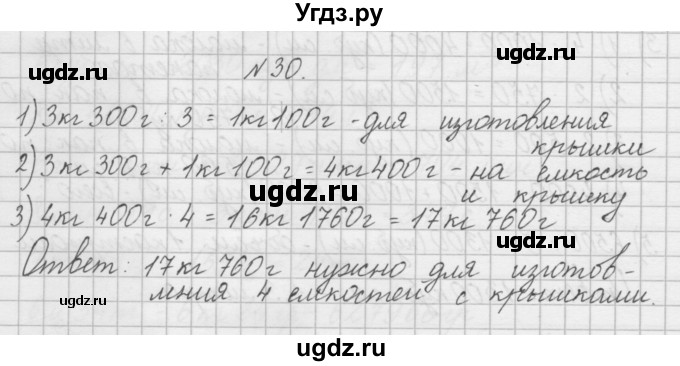 Угдз.ру
ugdz.ru ugdz.ru
№30.
1) 3кг 300г : 3 = 1кг 100г - для изготовления
крышки
2) 3кг 300г + 1кг 100г = 4кг 400г - на емкость
ugdz.ru
и крышку
3) 4кг 400г · 4 = 16кг 1760г = 17кг 760г
Ответ: 17кг 760г нужно для изготов-
ления 4 емкостей с крышками.
ugdz.ru ugdz.ru
ugdz.ru